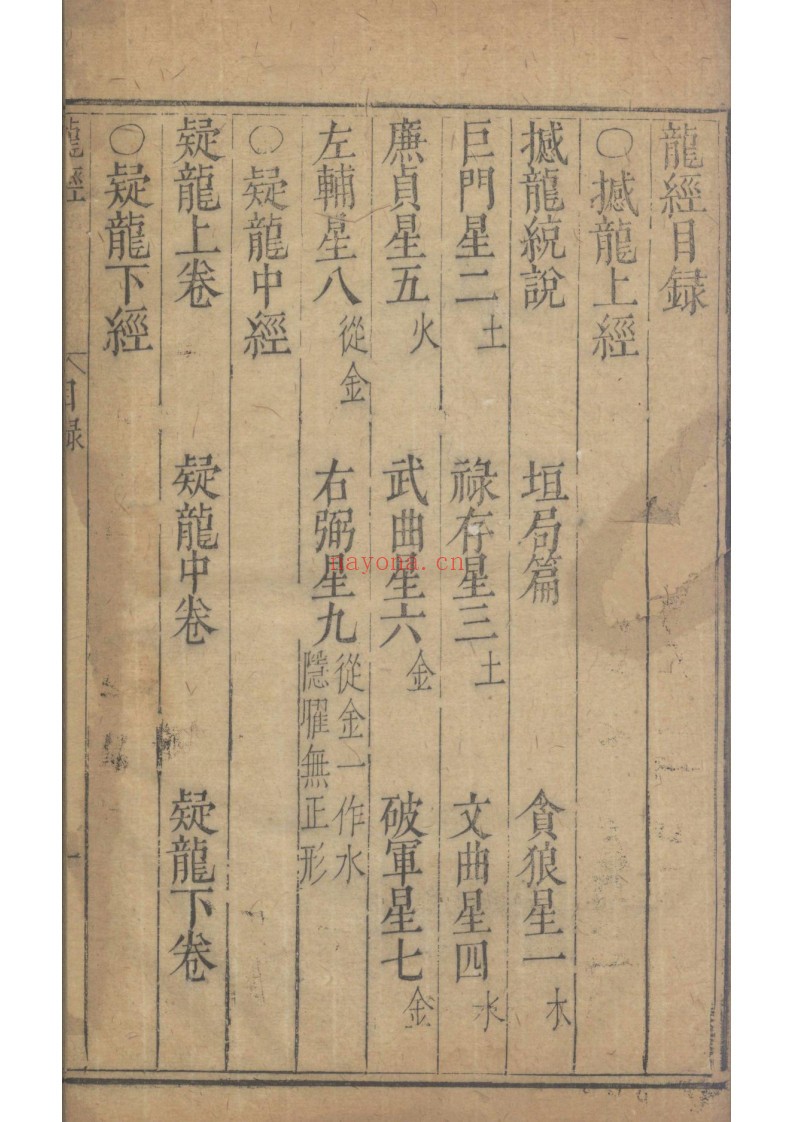 龍經目録
○撼龍上經
撼龍統說 垣局篇 貪狼星一木
巨門星二土 祿存星三土 文曲星四水
廉貞星五火 武曲星六金 破軍星七金
左輔星八從金 右弼星九從金一作水隱曜無正形
○疑龍中經
疑龍上卷 疑龍中卷 疑龍下卷
○疑龍下經
龍經 目録 一
nayona.cn